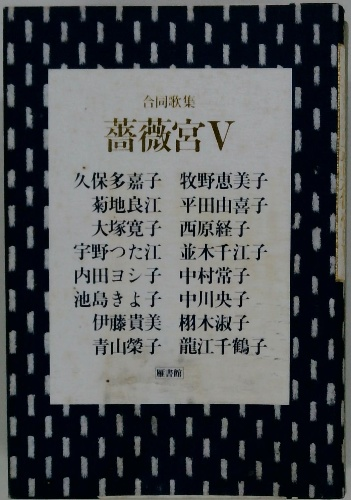 合同歌集
薔薇宮V
久保多嘉子 牧野恵美子
菊地良江 平田由喜子
大塚寛子 西原経子
宇野つた江 並木千江子
内田ヨシ子 中村常子
池島きよ子 中川央子
伊藤貴美 栩木淑子
青山榮子 龍江千鶴子
雁書館